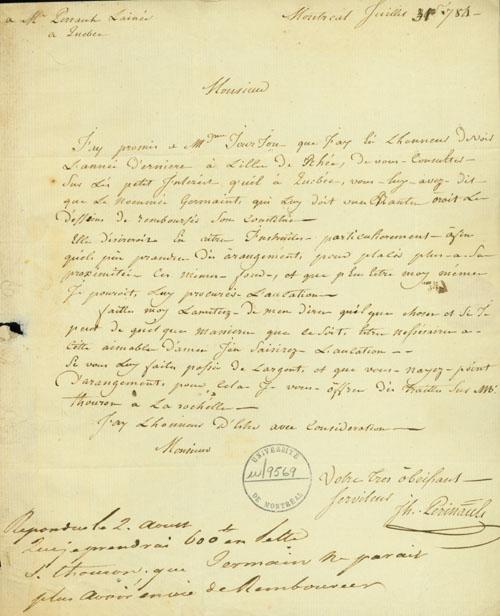 a Mr Perrault Lainée
a Quebec
Montreal Juillet 31 784
Monsieur
J'ay promis a Mdme que J'ay Eü Lhonneur de voir
Lannée derniere à Lille de Rhée, de vous Consulter
Sur Les petit Interêt qu'éll à Quebéc, vous luy avez dit
que Le Nommée Germaint, qui Luy doit une Rante avoit Le
Dessein de rembourser Son
Elle désireroit En être Instruite, particuliorement afin
quéll puis procurer dés arangement, pour placér plus à Sa
proximitée Ces mêmes fonds, et que peu être moy même
Je pouroit, Luy procurér Laucation
faites moy Lamitiez de men dire quélque chose et Se Je
peut de quélque maniere que Ce Soit, être néssésaire a
Cétte aimable Dame J'en Saisirez Laucation
Se vous Luy faites passér de Largent, et que vous nayez point
D'arangement, pour Céla Je vous ôffre dés traites Sur Mr
thouron à La rochélle
J'ay Lhonneur D'être avec Consideration
Monsieur
UNIVERSITÉ
u/9569
DE MONTRÉAL
Votre trés ôbeissant
Serviteur
Jh. Périnault
Repondu le 2. Aoust
Que je prendrai 600 tt en lettre
S. thouron, que Germain ne parait
plus avoir envie de Rembourcer